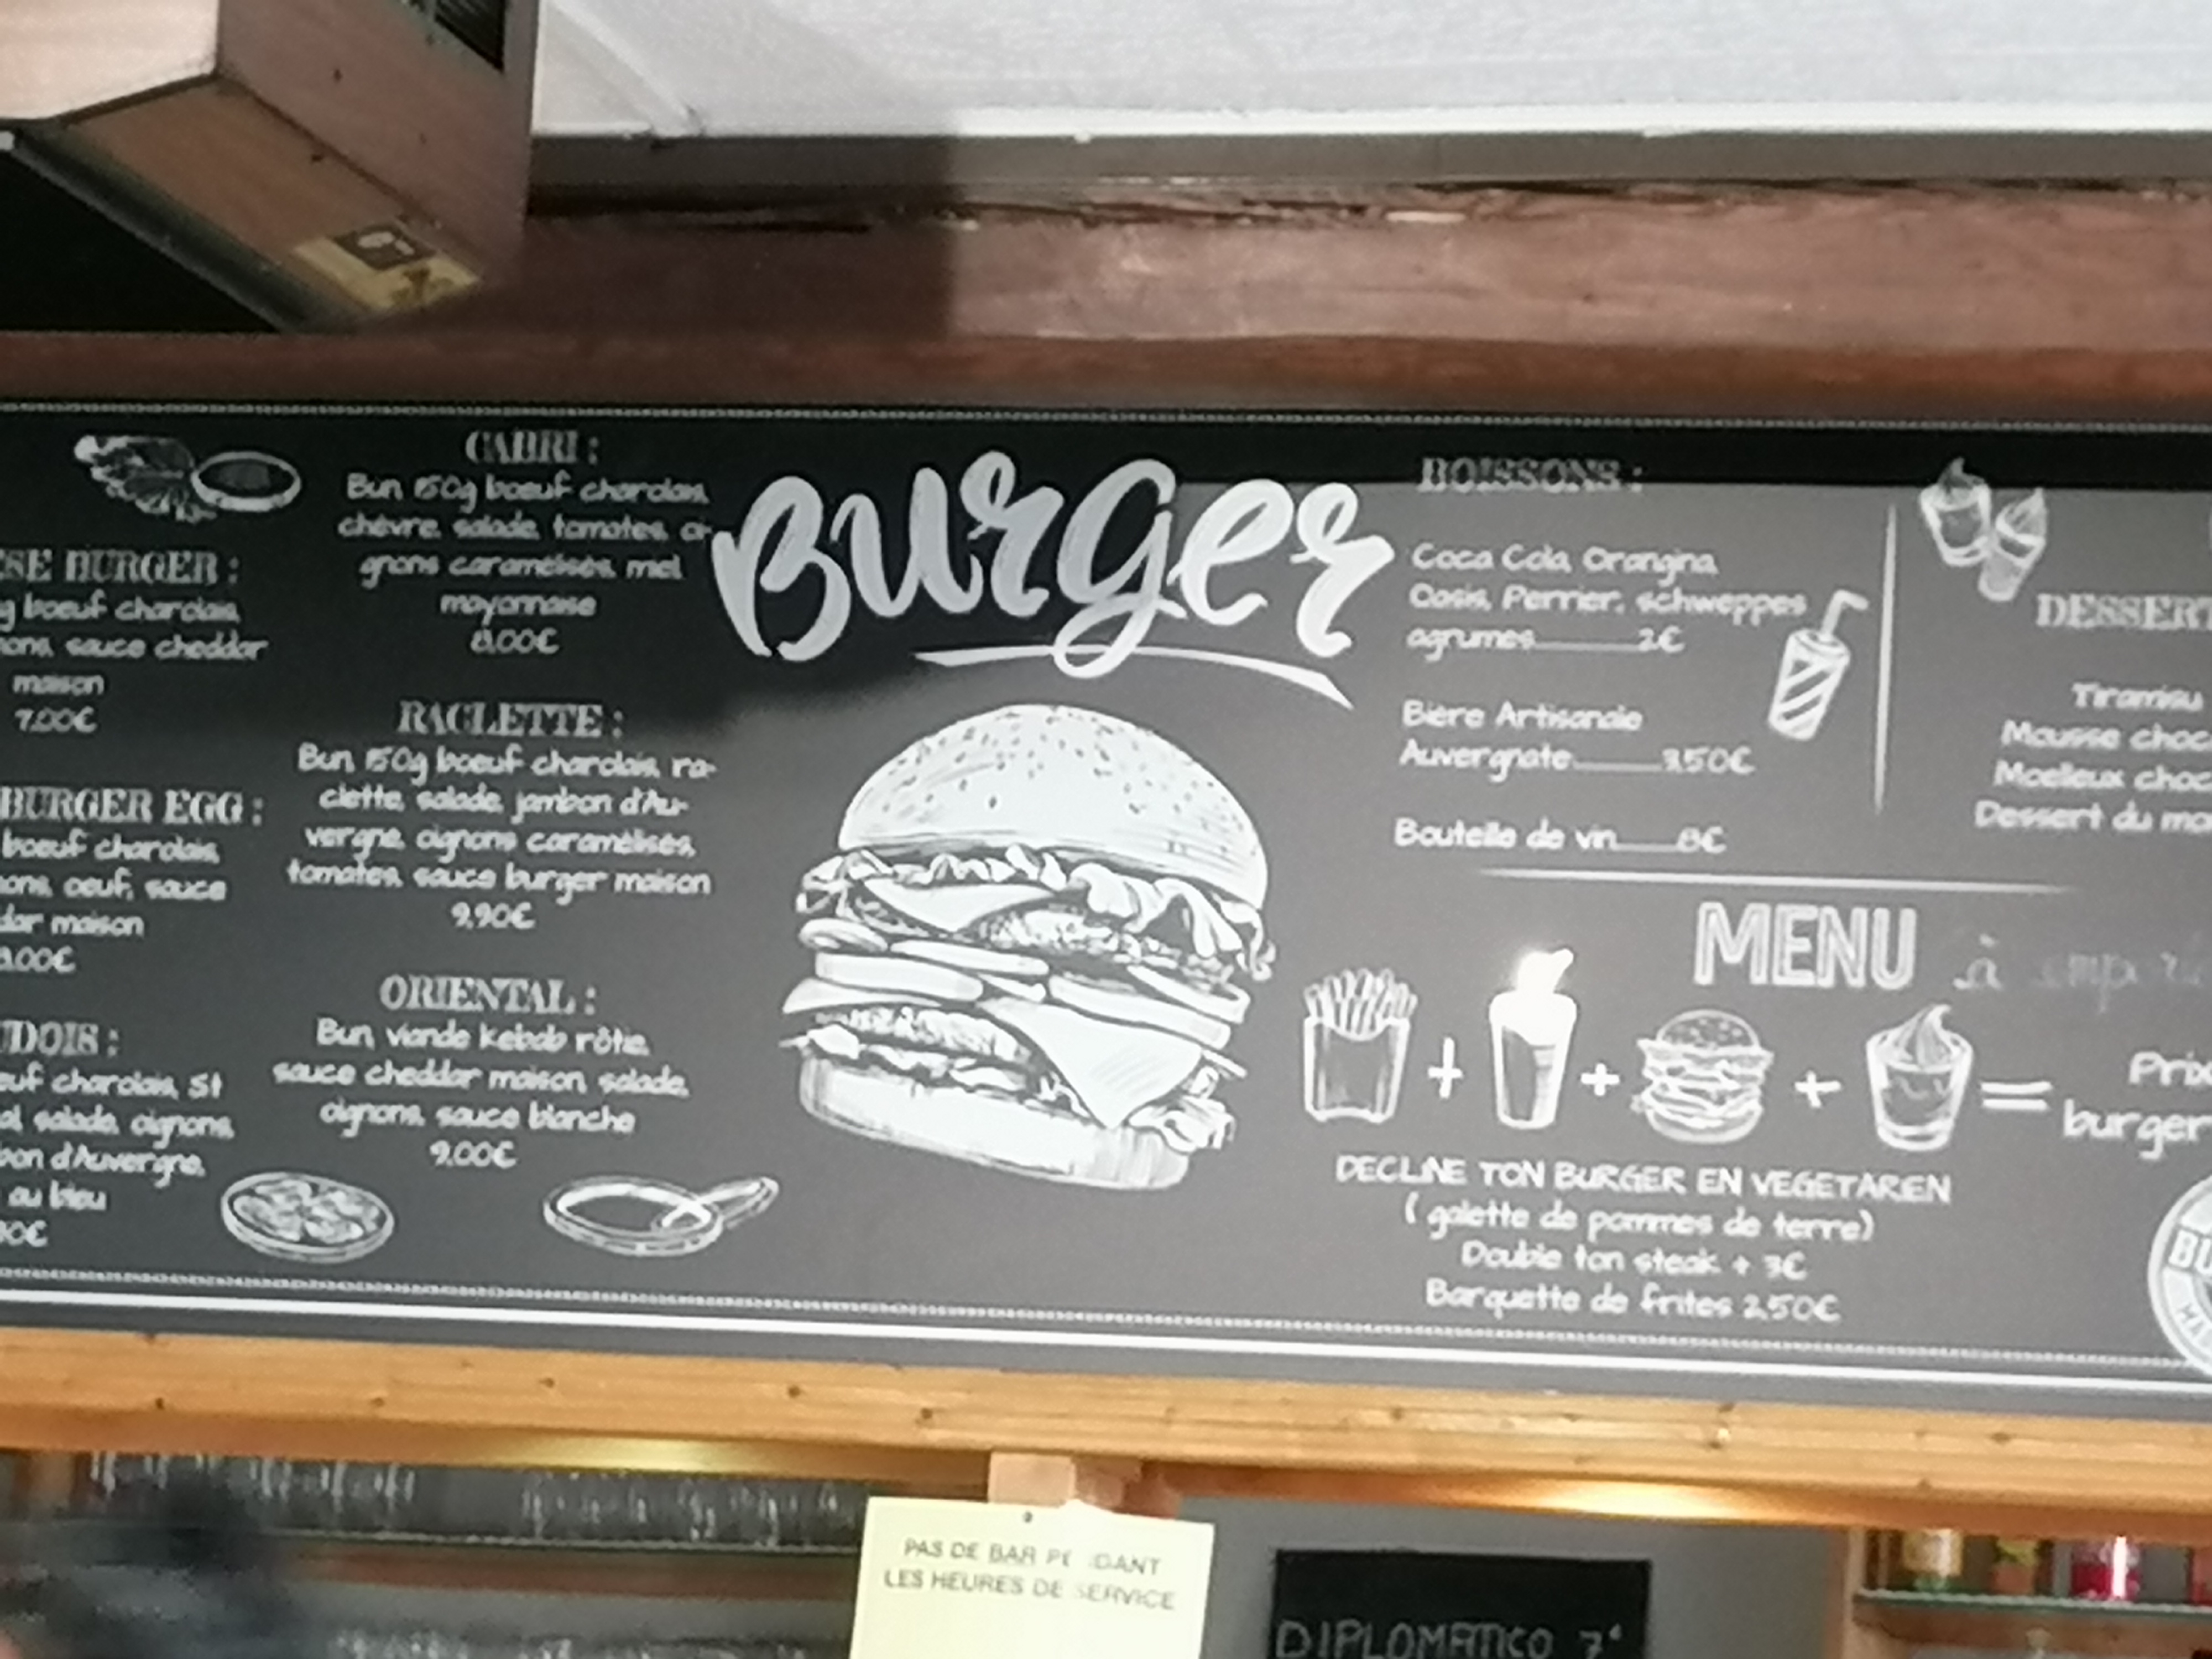 SE BURGER :
g boeuf charolais,
ons, sauce cheddar
maison
7,00€
BURGER EGG :
boeuf charolais,
ons, oeuf, sauce
dar maison
8,00€
DOIS :
euf charolais, St
al, salade, oignons,
bon d'Auvergne,
au bleu
CABRI :
Bun, 150g boeuf charolais,
chèvre, salade, tomates, oi-
gnons caramélisés, miel,
mayonnaise
8,00€
RACLETTE :
Bun, 150g boeuf charolais, ra-
clette, salade, jambon d'Au-
vergne, oignons caramélisés,
tomates, sauce burger maison
9,90€
ORIENTAL :
Bun, viande kebab rôtie,
sauce cheddar maison, salade,
oignons, sauce blanche
9,00€
Burger
BOISSONS :
Coca Cola, Orangina,
Oasis, Perrier, schweppes
agrumes..........2€
Bière Artisanale
Auvergnate..........3,50€
Bouteille de vin.......8€
DESSERT
Tiramisu
Mousse choc
Moelleux choc
Dessert du mo
MENU à empor
+ + + =
Prix
burger
DECLINE TON BURGER EN VEGETARIEN
( galette de pommes de terre)
Double ton steak + 3€
Barquette de frites 2,50€
BU
PAS DE BAR PENDANT
LES HEURES DE SERVICE
DIPLOMATICO 7€